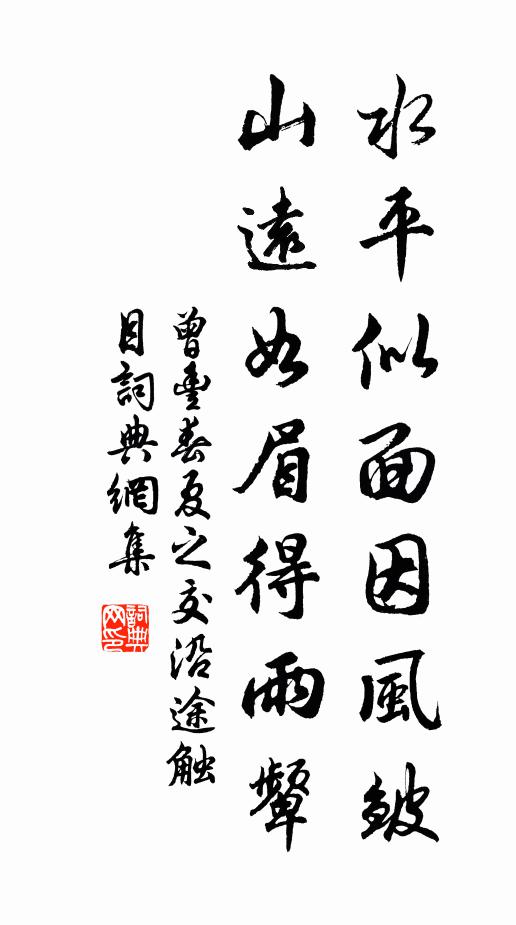 水平似面因風皴
山遠如眉得雨顰
曾豐春夏之交沿途触
目詞典網集
詞典网印